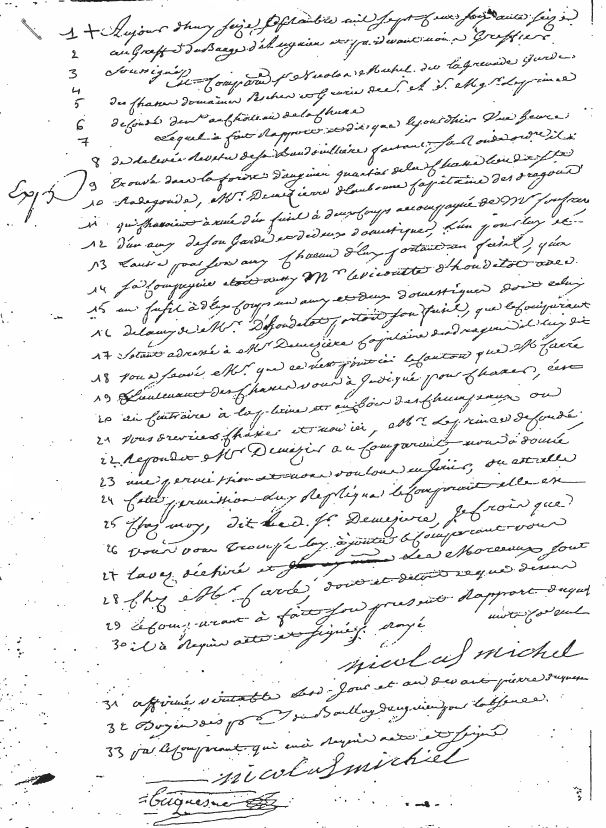 1 + Aujourd'huy seize septembre mil sept cent soixante seize
2 au Greffe du Bailliage d'Enguien et par devant nous Greffier
3 soussigné
4 Est Comparu Sr Nicolas Michel de la Grande Garde
5 des chasses domaines Peches et Gruerie de S. A. S. Mgr Le prince
6 de Condé dt au chateau de la chasse
7 Lequel a fait Rapport et dit que le jourd'hier Une heure
8 de relevée Revetu de sa Bandoulliere faisant sa Ronde ordre il a
Exp é
9 trouvé dans la foret d'enguien quartier de la Chasse lieu dit Ste
10 Radegonde, Mr Demeziere Capitaine des dragons
11 qui chassoient armé d'un fusil à deux coups accompagné de Mr
12 d'un amy de son Garde et de deux domestiques, l'un pour luy et
13 l'autre pour son amy Chacun d'eux portant un fusil, qu'a
14 sa Compagnie etoit aussy Mr le Vicomte d'houdetot avec
15 un fusil à deux coups un amy et deux domestiques dont celuy
16 de l'amy de Mr Dhoudetot portoit son fusil, que le Comparant
17 s'etant adressé à Mr Demeziere Capitaine des dragons il luy dit
18 vous savés Mr que ce n'est point ici le canton que Mr Carré
19 Lieutenant des Chasses vous à Indiqué pour chasser, c'est
20 au contraire à la pleine et au bois des Champeaux ou
21 vous devriés chasser et non ici, Mr Le prince de Condé
22 Repondit Mr Demezier au Comparant, nous à donné
23 une permission et nous voulons en Jouir, ou est elle
24 cette permission luy Repliqua le Comparant elle est
25 Chez moy, dit led. Sr Demeziere, Je crois que
26 vous vous trompé luy ajouta le Comparant vous
27 l'avez déchiré et Les Morceaux sont
28 Chez Mr Carré, dont et de tout ce que dessus
29 le Comparant à fait son present Rapport duquel
30 il à Requis acte et signé, Rayé mots nuls
nicolas michel
31 affirmé véritable led. Jour et an devant pierre duquesne
32 Doyen des du Bailliage d'enguien pour l'absence
33 par le Comparant qui en à Requis acte et signé
nicolas michel
Duquesne